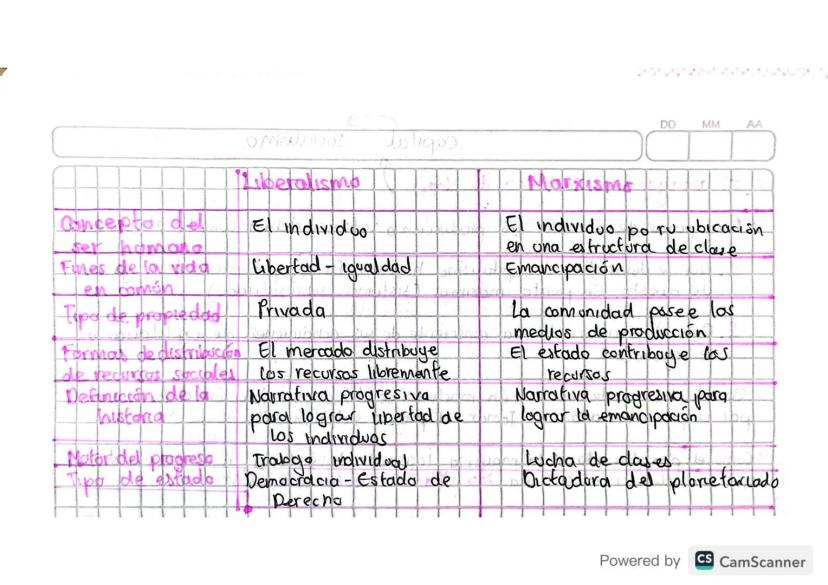 DD MM AA
Liberalismo Marxismo
Concepto del El individuo El individuo po ru ubicación
ser humano en una estructura de clase
Fines de la vida Libertad - igualdad Emancipación
en común
Tipo de propiedad Privada La comunidad posee los
medios de producción
Formas de distribución El mercado distribuye El estado contribuye las
de recursos sociales los recursos libremente recursos
Definición de la Narrativa progresiva Narrativa progresiva para
historia para lograr libertad de lograr la emancipación
los individuos
Motor del progreso Trabajo individual Lucha de clases
Tipo de estado Democracia - Estado de Dictadora del planetariado
Derecho
Powered by CS CamScanner